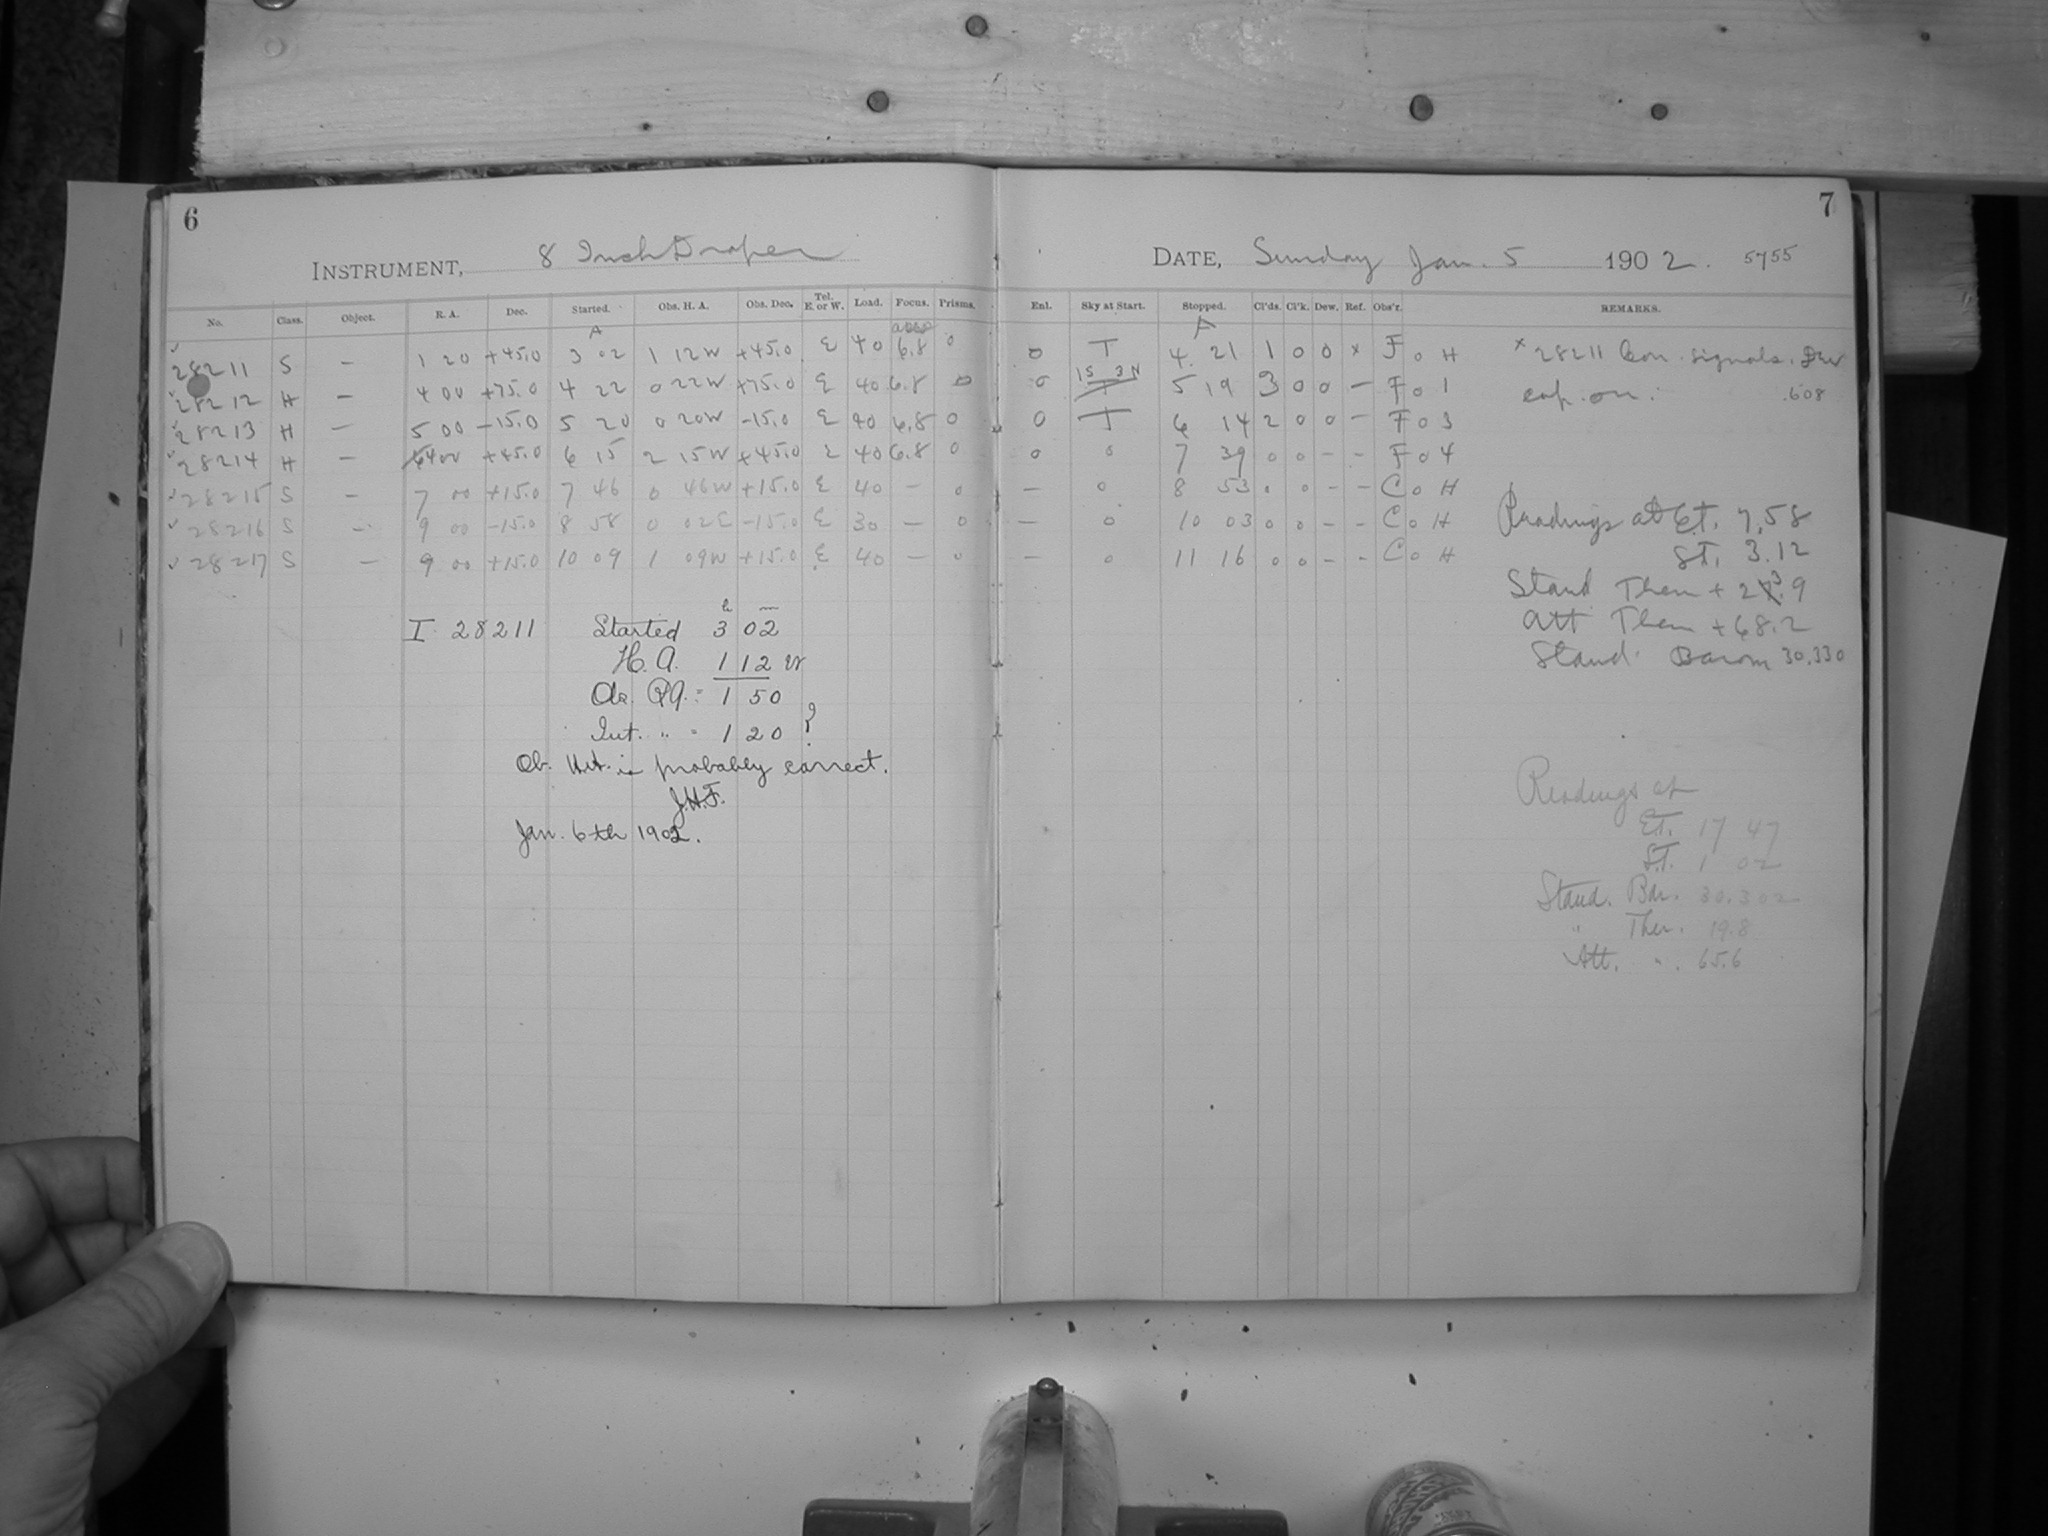 6
7
INSTRUMENT, 8 Inch Draper
DATE, Sunday Jan. 5 1902. 5755
No. Class. Object. R. A. Dec. Started. Obs. H. A. Obs. Dec. Tel. E or W. Load. Focus. Prisms. Enl. Sky at Start. Stopped. Cl'ds. Cl'k. Dew. Ref. Obs'r. REMARKS.
A A
28211 S — 1 20 +45.0 3 02 1 12W +45.0 E 40 6.8 0 0 T 4 21 1 0 0 x F 0 H x 28211 Con. signals. Dew
1S 3N
28212 H — 4 00 +75.0 4 22 0 22W +75.0 E 40 6.8 0 0 T 5 19 3 0 0 — F 0 1 cap on. .608
28213 H — 5 00 -15.0 5 20 0 20W -15.0 E 40 6.8 0 0 T 6 14 2 0 0 — F 0 3
28214 H — 400 +45.0 6 15 2 15W +45.0 E 40 6.8 0 0 0 7 39 0 0 — — F 0 4
28215 S — 7 00 +15.0 7 46 0 46W +15.0 E 40 — 0 — 0 8 53 0 0 — — C 0 H
28216 S — 9 00 -15.0 8 58 0 02E -15.0 E 30 — 0 — 0 10 03 0 0 — — C 0 H
28217 S — 9 00 +15.0 10 09 1 09W +15.0 E 40 — 0 — 0 11 16 0 0 — — C 0 H
Readings at E.T. 7.58
S.T. 3.12
Stand Ther + 23.9
Att Ther +68.2
Stand Barom 30.330
h m
I 28211 Started 3 02
H. A. 1 12 W
Ob. R.A. = 1 50
Int. " = 1 20 ?
Ob. H.A. is probably correct.
J.H.F.
Jan. 6th 1902.
Readings at
E.T. 17 47
S.T. 1 02
Stand. Bar. 30.302
" Ther. 19.8
Att. ". 65.6